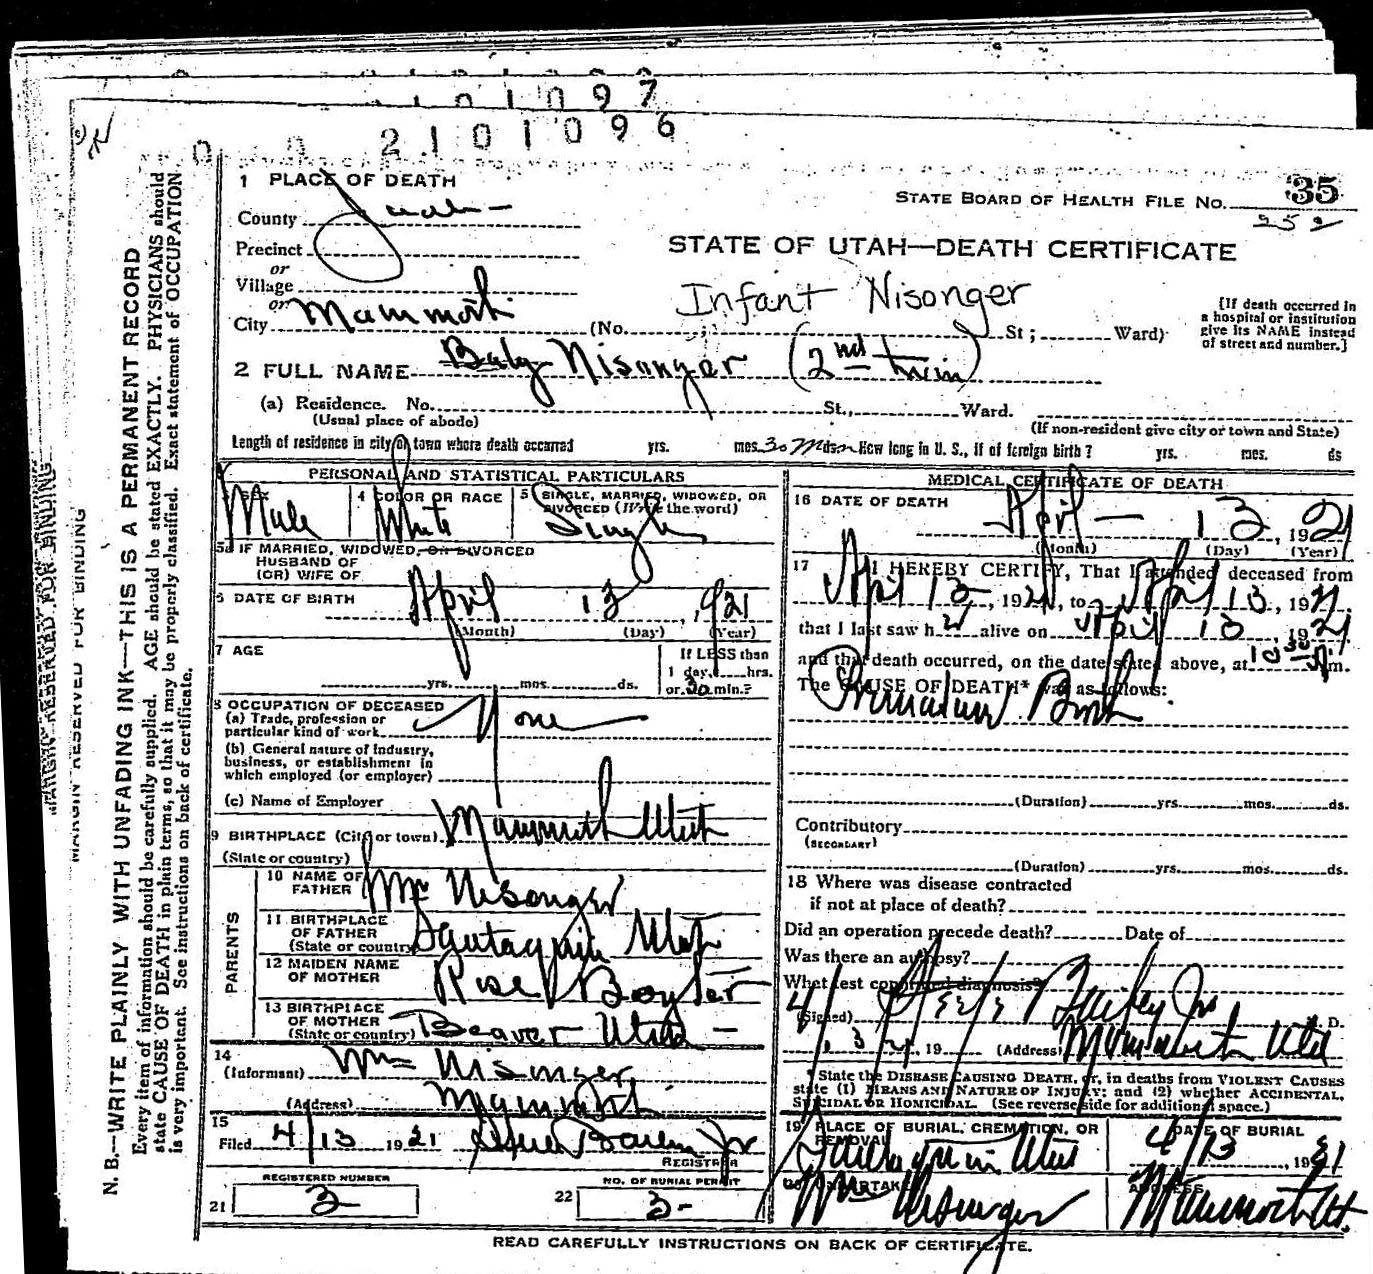 1 0 1 0 9 7
2 1 0 1 0 9 6
1 PLACE OF DEATH
STATE BOARD OF HEALTH FILE No. 35
252
County Juab
Precinct
or
Village
or
City Mammoth
STATE OF UTAH—DEATH CERTIFICATE
Infant Nisonger
(No. ; St; Ward)
[If death occurred in
a hospital or institution
give its NAME instead
of street and number.]
2 FULL NAME Baby Nisonger (2nd twin)
(a) Residence. No. St., Ward.
(Usual place of abode)
(If non-resident give city or town and State)
Length of residence in city or town where death occurred yrs. mos. 30 ds. How long in U. S., if of foreign birth? yrs. mos. ds
PERSONAL AND STATISTICAL PARTICULARS
SEX Male
4 COLOR OR RACE White
5 SINGLE, MARRIED, WIDOWED, OR
DIVORCED (Write the word) Single
5a IF MARRIED, WIDOWED, OR DIVORCED
HUSBAND OF
(OR) WIFE OF
6 DATE OF BIRTH April 13, 1921
(Month) (Day) (Year)
7 AGE
yrs. mos. ds.
If LESS than
1 day, hrs.
or 30 min.?
8 OCCUPATION OF DECEASED
(a) Trade, profession or
particular kind of work None
(b) General nature of Industry,
business, or establishment in
which employed (or employer)
(c) Name of Employer
9 BIRTHPLACE (City or town) Mammoth Utah
(State or country)
PARENTS
10 NAME OF
FATHER Wm Nisonger
11 BIRTHPLACE
OF FATHER
(State or country) Utah
12 MAIDEN NAME
OF MOTHER Rose Boyter
13 BIRTHPLACE
OF MOTHER
(State or country) Beaver Utah
14
(Informant) Wm Nisonger
(Address) Mammoth
15
Filed 4/13 1921 Steele Bailey Jr
REGISTRAR
REGISTERED NUMBER
21 3
NO. OF BURIAL PERMIT
22 3
MEDICAL CERTIFICATE OF DEATH
16 DATE OF DEATH
April 13, 1921
(Month) (Day) (Year)
17 I HEREBY CERTIFY, That I attended deceased from
April 13, 1921, to April 13, 1921
that I last saw h alive on April 13, 1921
and that death occurred, on the date stated above, at 10 30 A m.
The CAUSE OF DEATH* was as follows:
Premature Birth
(Duration) yrs. mos. ds.
Contributory
(SECONDARY)
(Duration) yrs. mos. ds.
18 Where was disease contracted
if not at place of death?
Did an operation precede death? Date of
Was there an autopsy?
What test confirmed diagnosis?
(Signed) Steele Bailey Jr M. D.
19 (Address) Mammoth Utah
* State the DISEASE CAUSING DEATH, or, in deaths from VIOLENT CAUSES
state (1) MEANS AND NATURE OF INJURY; and (2) whether ACCIDENTAL,
SUICIDAL OR HOMICIDAL. (See reverse side for additional space.)
19 PLACE OF BURIAL, CREMATION, OR
REMOVAL
Utah
DATE OF BURIAL
4/13, 1921
20 UNDERTAKER
Wm Nisonger
ADDRESS
Mammoth Ut.
READ CAREFULLY INSTRUCTIONS ON BACK OF CERTIFICATE.
MARGIN RESERVED FOR BINDING
MARGIN RESERVED FOR BINDING
N. B.—WRITE PLAINLY WITH UNFADING INK—THIS IS A PERMANENT RECORD
Every item of information should be carefully supplied. AGE should be stated EXACTLY. PHYSICIANS should
state CAUSE OF DEATH in plain terms, so that it may be properly classified. Exact statement of OCCUPATION
is very important. See instructions on back of certificate.